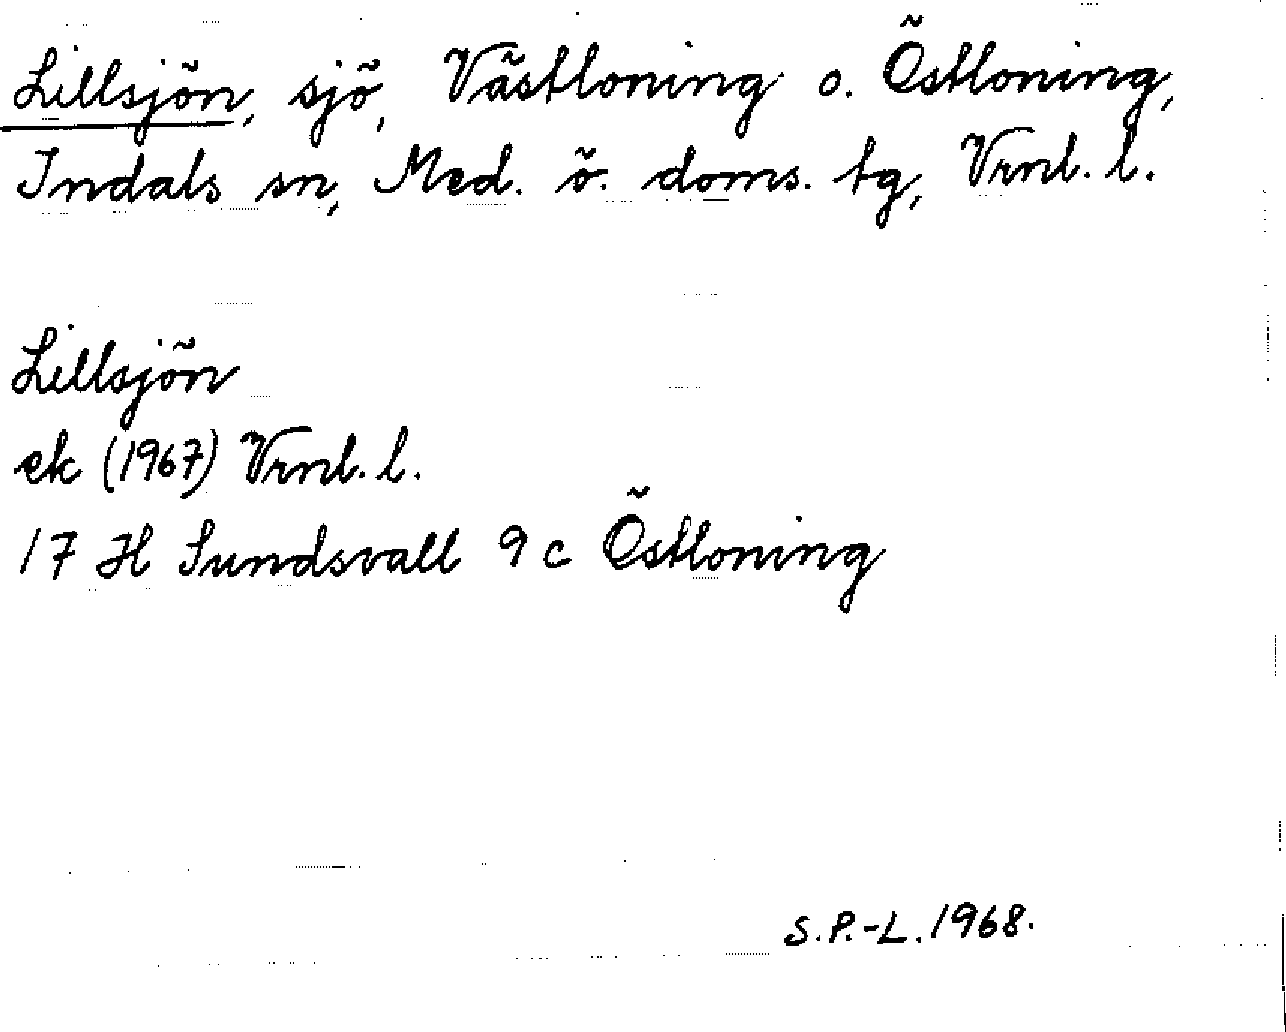 Lillsjön, sjö, Västloning o. Östloning,
Indals sn, Med. ö. doms. tg, Vrnl. l.
Lillsjön
ek (1967) Vrnl. l.
17 H Sundsvall 9 c Östloning
S.P.-L. 1968.